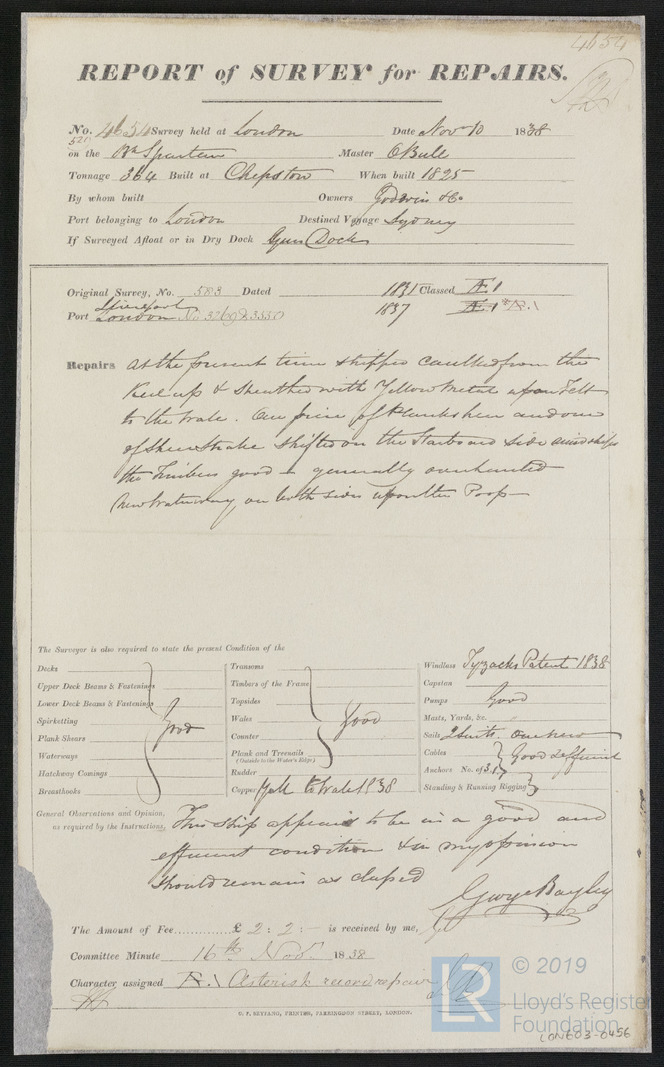 4654
REPORT of SURVEY for REPAIRS.
No. 4654 Survey held at London Date Nov 10 1838
521
on the Bk Spartan Master O Bull
Tonnage 364 Built at Chepstow When built 1825
By whom built Owners Godwin & Co
Port belonging to London Destined Voyage Sydney
If Surveyed Afloat or in Dry Dock Dock
Original Survey, No. 583 Dated 1831 Classed Æ 1
Liverpool
Port London No 3269 & 3550 1837 Æ 1 * Æ 1
Repairs At the present time stripped caulked from the
Keel up & Sheathed with Yellow Metal upon Felt
to the Wale. One piece of Planksheer and one
of Sheer Strake Shifted on the Starboard side amidships
the Timbers good & generally overhauled
New Waterway on both sides upon the Poop
The Surveyor is also required to state the present Condition of the
Decks
Upper Deck Beams & Fastenings
Lower Deck Beams & Fastenings
Spirketting Good
Plank Shears
Waterways
Hatchway Comings
Breasthooks
Transoms
Timbers of the Frame
Topsides
Wales Good
Counter
Plank and Treenails
(Outside to the Water's Edge)
Rudder
Copper to Wales 1838
Windlass Tyzacks Patent 1838
Capstan
Pumps Good
Masts, Yards, &c. "
Sails 2 Suits. One New
Cables Good & efficient
Anchors No. of 3.1
Standing & Running Rigging
General Observations and Opinion, This Ship appears to be in a good and
as required by the Instructions, efficient condition & in my opinion
should remain as classed
George Bayley
The Amount of Fee............ £ 2 : 2 : - is received by me,
Committee Minute 16th Novr. 1838
Character assigned Æ 1 Asterisk record repair
G. F. SEYFANG, PRINTER, FARRINGDON STREET, LONDON.
LR
© 2019
Lloyd's Register
Foundation
LON603-0456